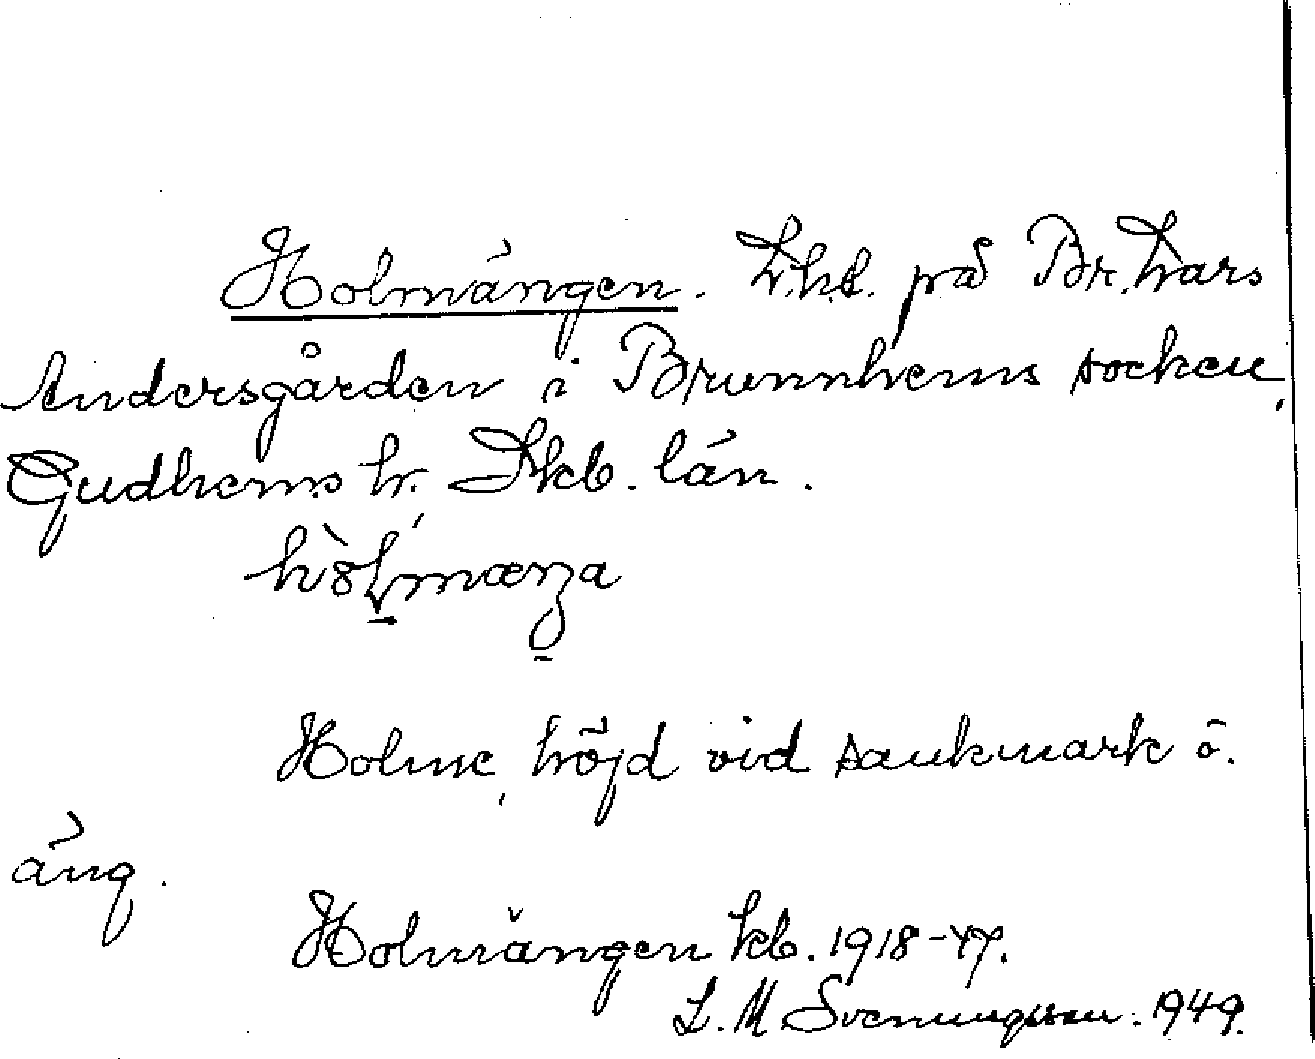 Holmängen. Lht. på Br. Lars
Andersgården i Brunnhems socken,
Gudhems hr. Skb. län.
hò̀ḷmæŋa
Holme, höjd vid sankmark o.
äng.
Holmängen kb. 1918-47.
L. M Svenungsson. 1949.